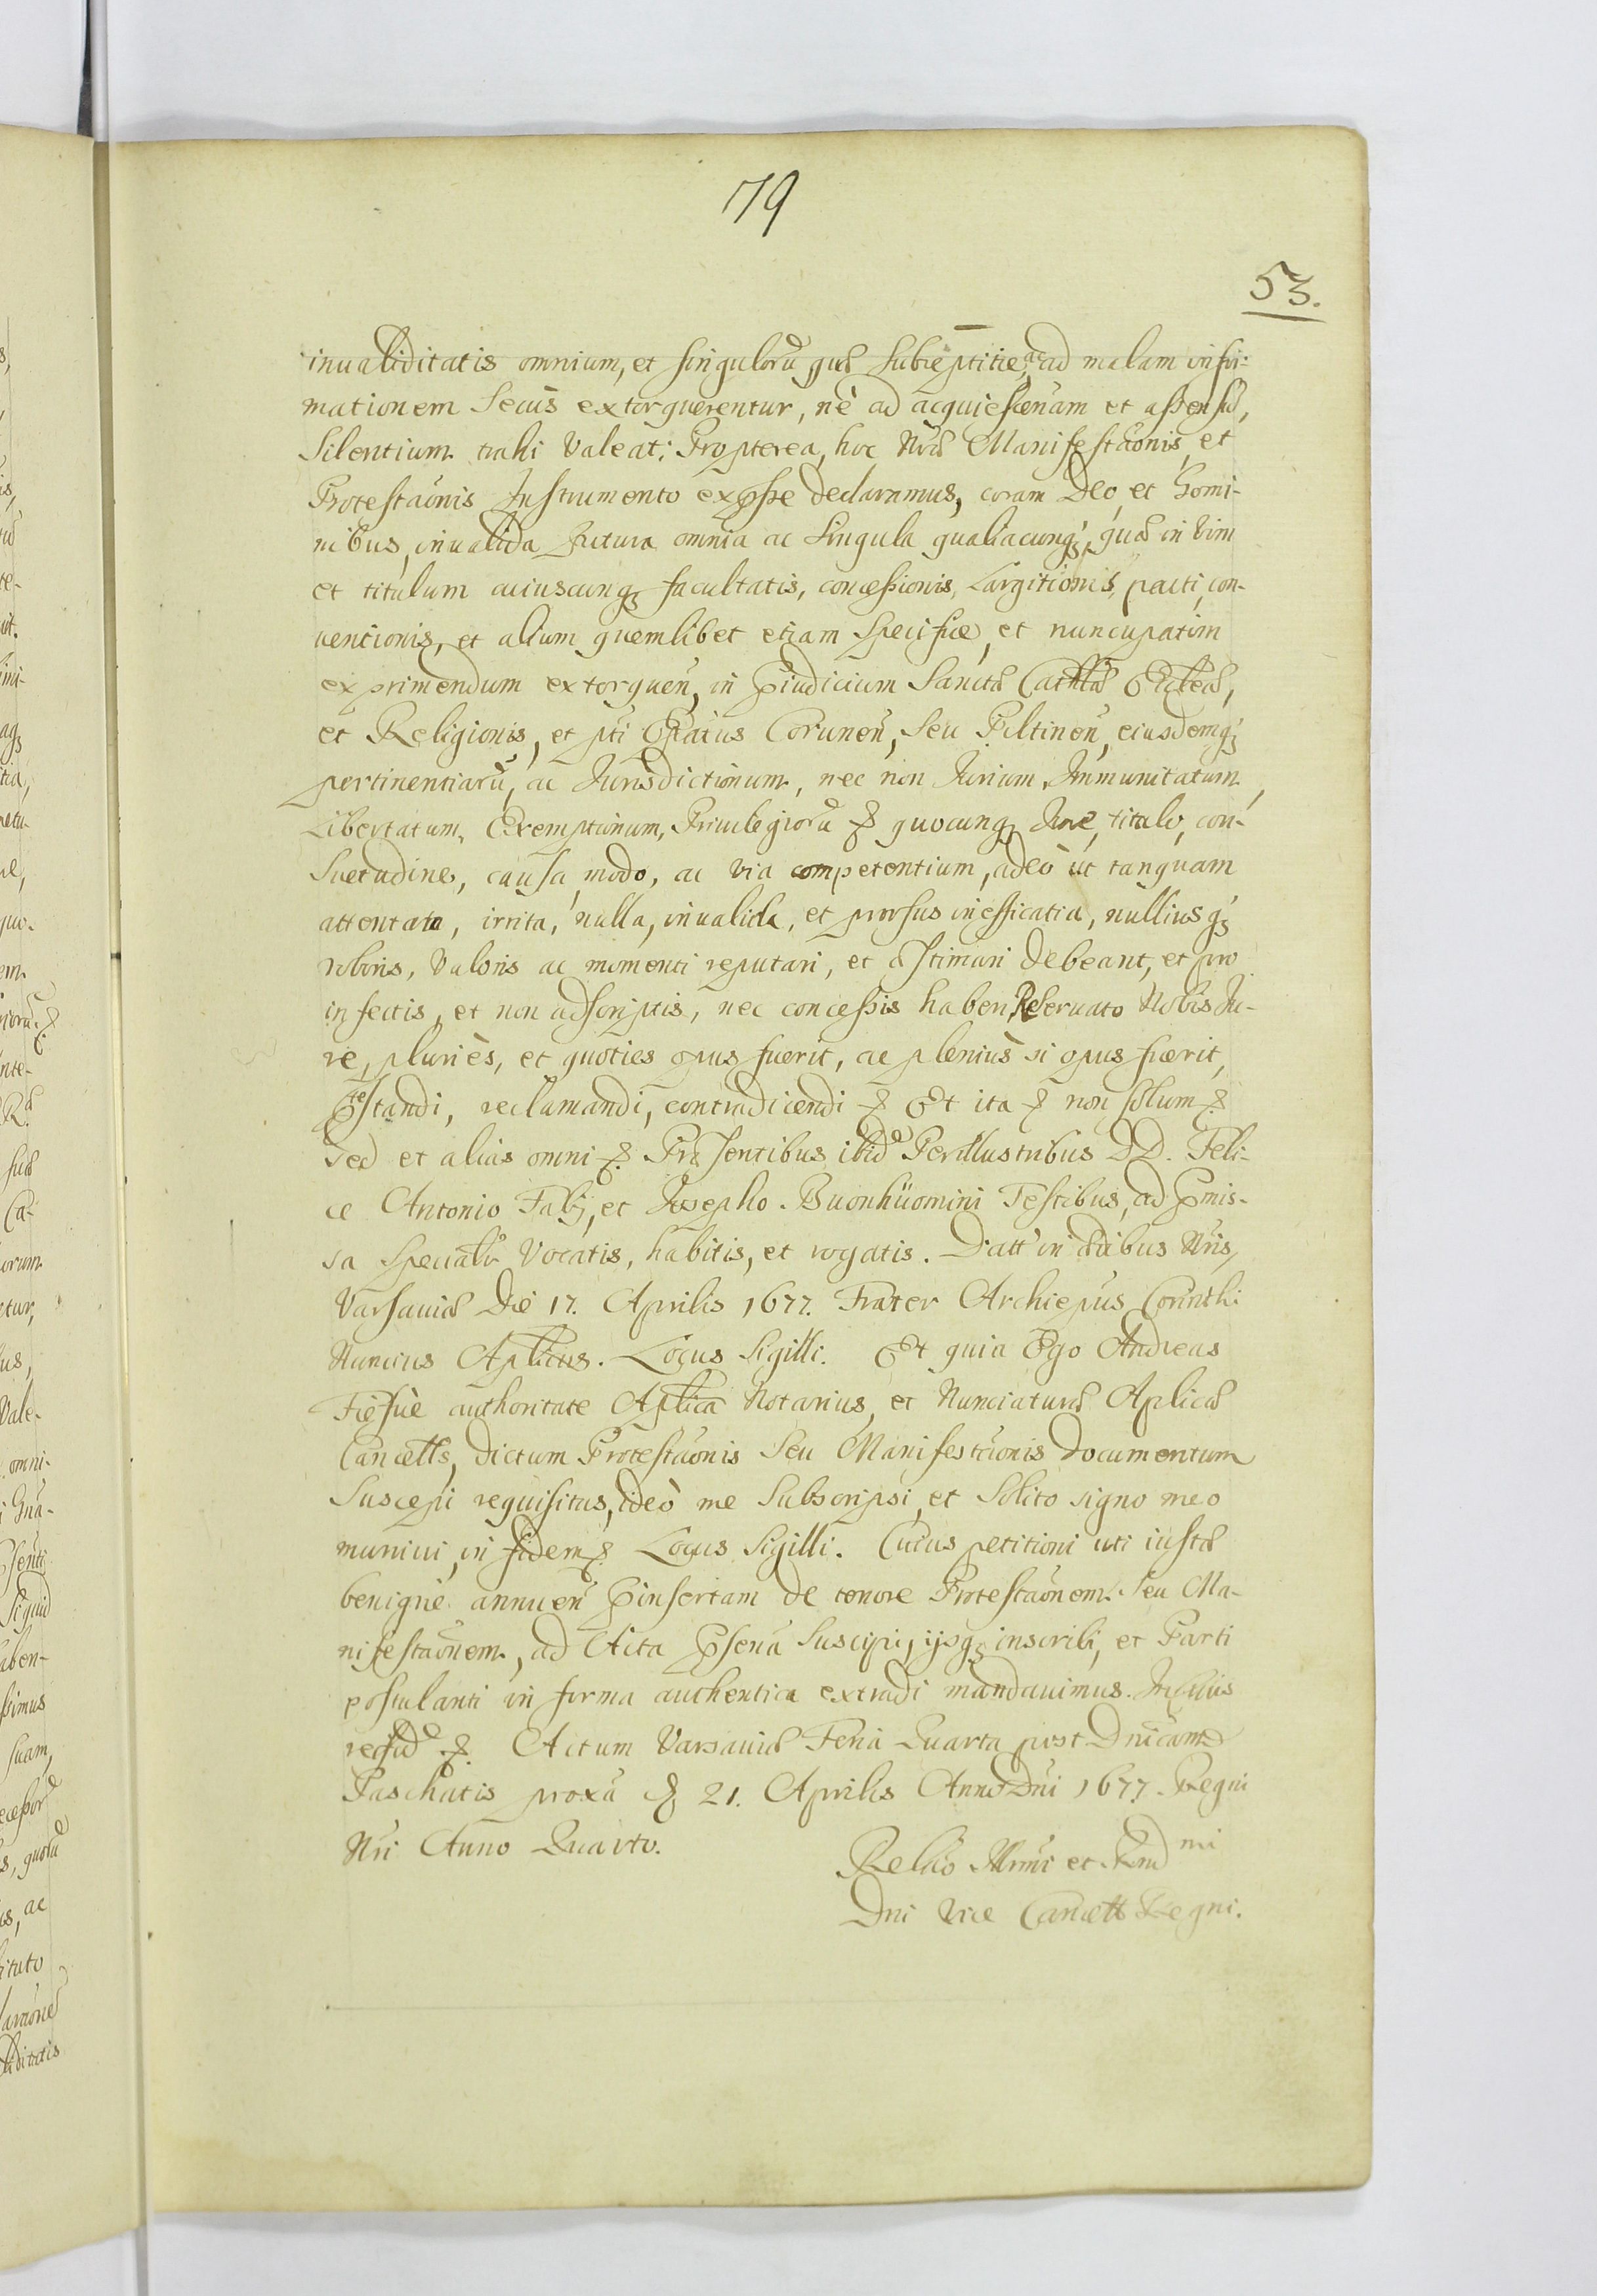 79
53.
inualiditatis omnium, et singulorũ quæ subreptitiè, ac ad malam infor-
mationem secùs extorquerentur, nè ad acquiescenam et assensũ,
Silentium trahi valeat; Propterea, hoc Nræ Manifestaõnis, et
Protestaõnis Instrumento expsse declaramus, coram Deo, et homi-
nibus, inualida futura omnia ac singula qualiacunq;, quæ in vim
et titulum cuiuscunq; facultatis, concessionis, Largitionis, pacti, con-
uentionis, et alium quemlibet etiam specificè, et nuncupatim
exprimendum extorqueñ, in p̃iudicium Sanctæ Cathlæ Ecclæ,
et Religionis, et pti Eptatus Curuneñ, seu Piltineñ, eiusdemq;
pertinentiarũ, ac Jurisdictionum, nec non Jurium, Immunitatum,
Libertatum, Exemptionum, Priuilegiorũ & quocunq; Jure, titulo, con-
suetudine, causa, modo, ac via competentium, adeò ut tanquam
attentata, irrita, nulla, inualida, et prorsus inefficatia, nulliusq;
roboris, valoris ac momenti reputari, et æstimari debeant, et pro
infectis, et non adscriptis, nec concessis haberi, Reseruato Nobis Ju-
re, pluriès, et quoties opus fuerit, ac pleniùs si opus fuerit,
Ptestandi, reclamandi, contradicendi & Et ita & non solum &
sed et alias omni &. Præsentibus ibid Perillustribus DD. Feli-
ce Antonio Fabij, et Josepho Buonhüomini Testibus, ad p̃mis-
sa specialr vocatis, habitis, et rogatis. Datt in ædibus Nris,
Varsauiæ Die 17. Aprilis 1677. Frater Archiepus Corinthi
Nuncius Aplicus. Locus Sigilli. Et quia Ego Andreas
Fiesuè authoritate Aplica Notarius, et Nunciaturæ Aplicæ
Cancells, dictum Protestaõnis seu Manifestaõnis documentum
suscepi requisitus, ideò me subscripsi, et solito signo meo
muniui, in fidem &. Locus Sigilli. Cuius petitioni uti iustæ
benignè annueñ p̃insertam de tenore Protestaõnem seu Ma-
nifestaõnem, ad Acta p̃sena suscipi, ijsq; inscribi, et Parti
postulanti in forma authentica extradi mandauimus. In cuius
rei fid &. Actum Varsauiæ Feria Quarta post Dnicam
Paschatis proxa & 21. Aprilis Anno Dni 1677. Regni
Nri Anno Quarto.
Relãõ Illrmi et Rnd mi
Dni Vice Cancell Regni.